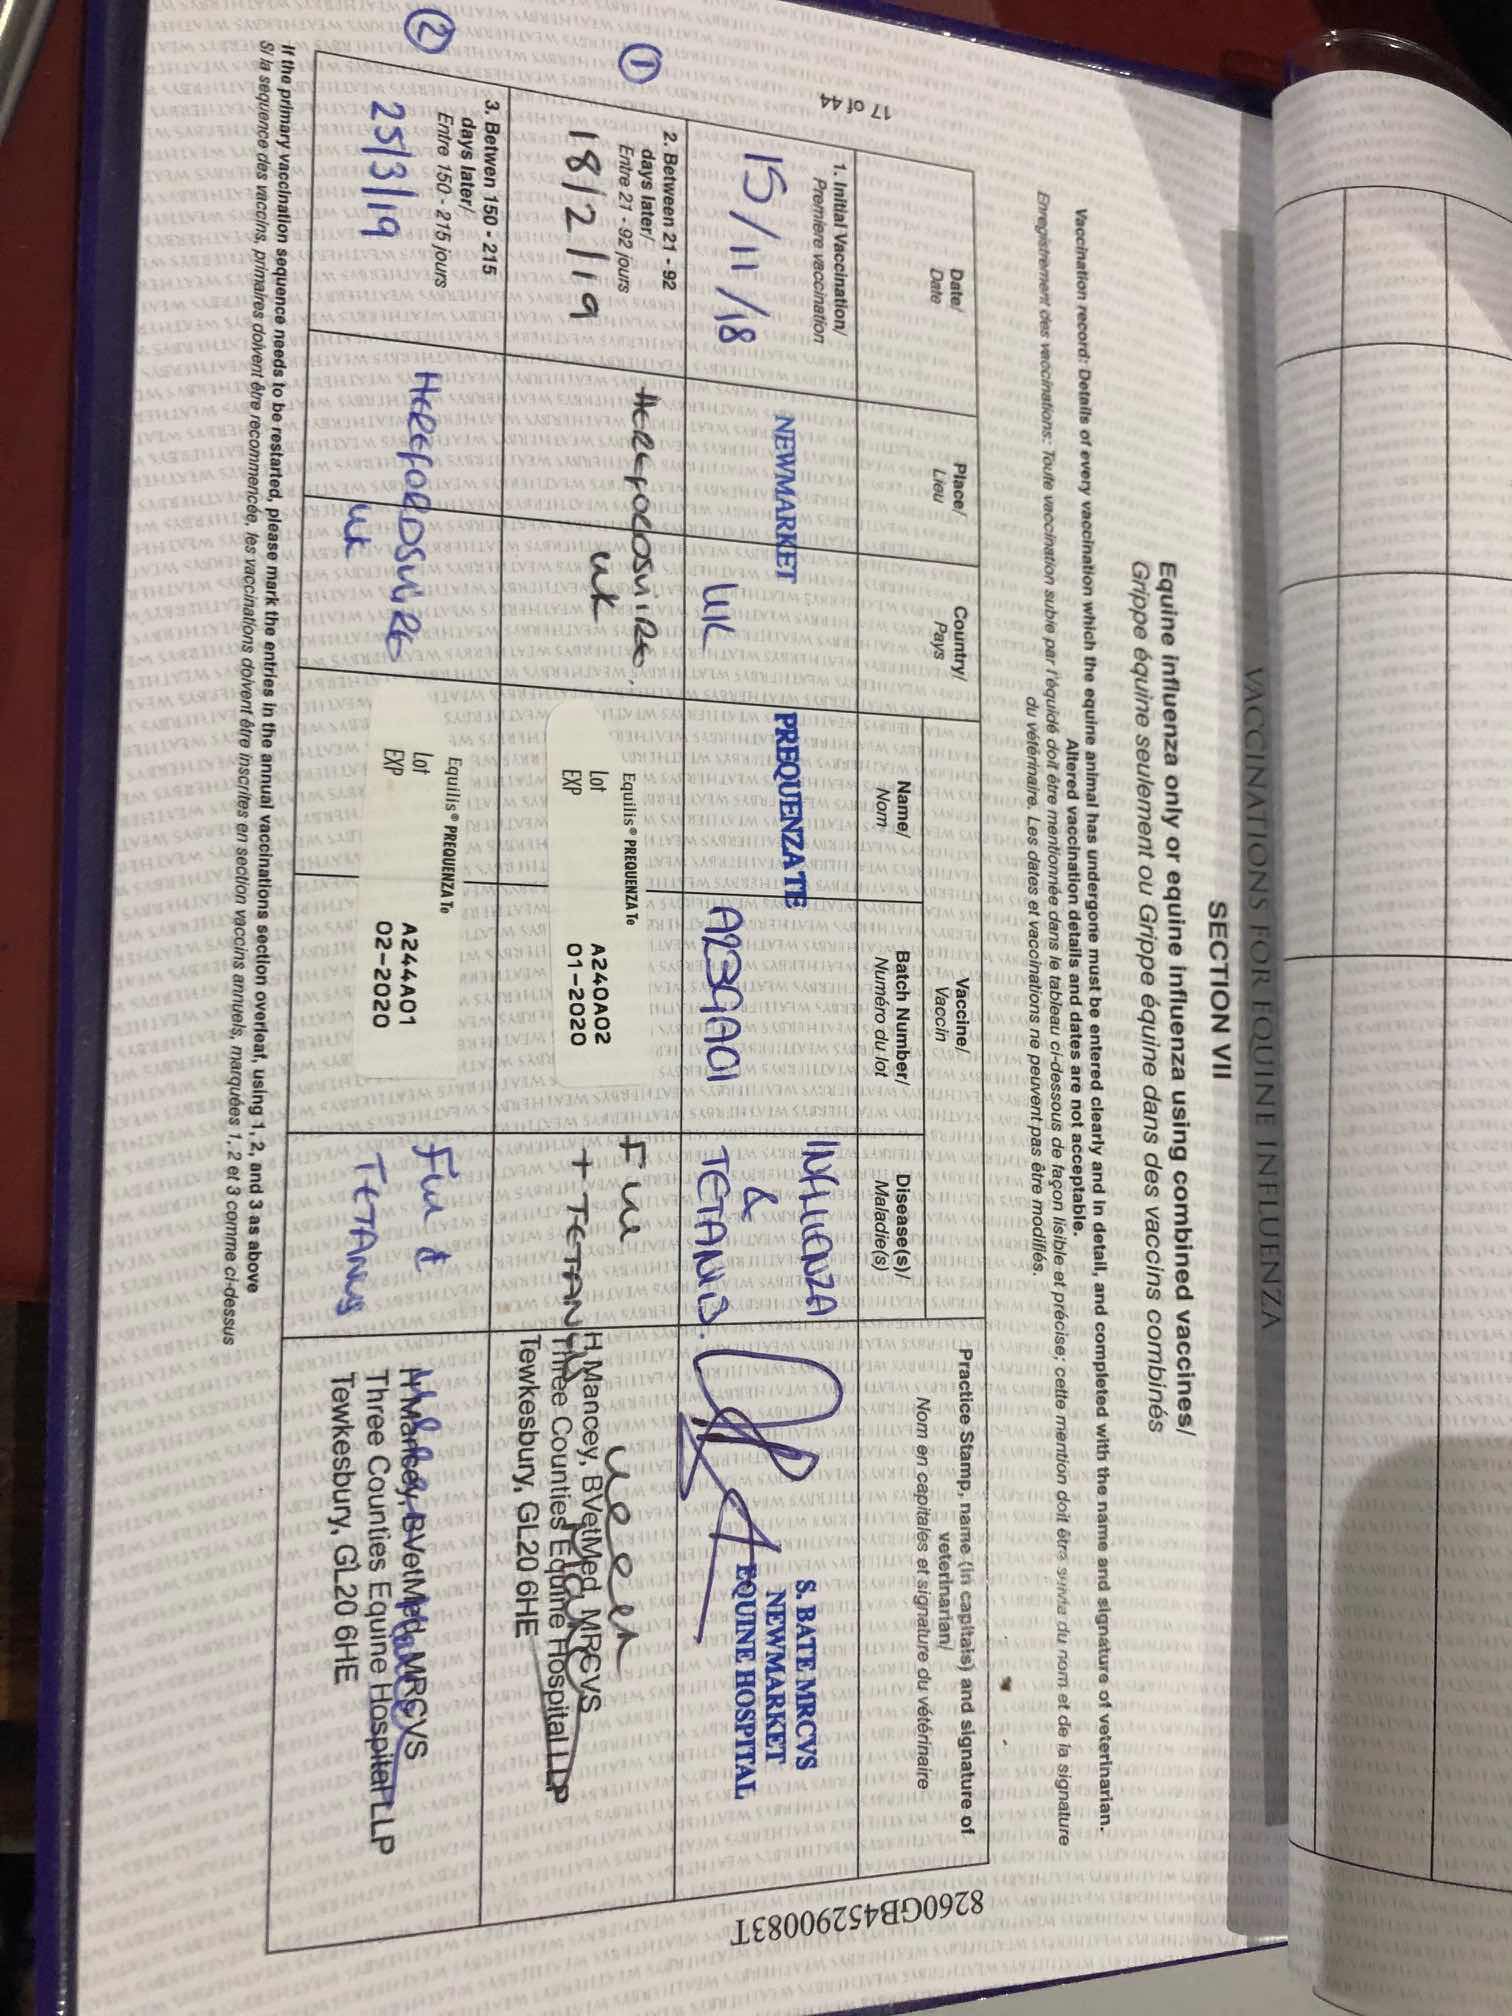 VACCINATIONS FOR EQUINE INFLUENZA
SECTION VII
Equine influenza only or equine influenza using combined vaccines/
Grippe équine seulement ou Grippe équine dans des vaccins combinés
Vaccination record: Details of every vaccination which the equine animal has undergone must be entered clearly and in detail, and completed with the name and signature of veterinarian.
Altered vaccination details and dates are not acceptable.
Enregistrement des vaccinations: Toute vaccination subie par l'équidé doit être mentionnée dans le tableau ci-dessous de façon lisible et précise; cette mention doit être suivie du nom et de la signature
du vétérinaire. Les dates et vaccinations ne peuvent pas être modifiés.
Date/
Date
Place/
Lieu
Country/
Pays
Vaccine/
Vaccin
Name/
Nom
Batch Number/
Numéro du lot
Disease(s)/
Maladie(s)
Practice Stamp, name (in capitals) and signature of
veterinarian/
Nom en capitales et signature du vétérinaire
1. Initial Vaccination/
Premiere vaccination
15/11/18
NEWMARKET
UK
PREQUENZA TE
A239A01
INFLUENZA
&
TETANUS.
S. BATE MRCVS
NEWMARKET
EQUINE HOSPITAL
①
2. Between 21 - 92
days later/
Entre 21 - 92 jours
18/2/19
HEREFORDSHIRE
UK
Equilis® PREQUENZA Te
Lot A240A02
EXP 01-2020
Flu
+ TETANUS
H Mancey, BVetMed MRCVS
Three Counties Equine Hospital LLP
Tewkesbury, GL20 6HE
②
3. Betwen 150 - 215
days later/
Entre 150 - 215 jours
25/3/19
HEREFORDSHIRE
UK
Equilis® PREQUENZA Te
Lot A244A01
EXP 02-2020
Flu &
TETANUS
H Mancey, BVetMed MRCVS
Three Counties Equine Hospital LLP
Tewkesbury, GL20 6HE
If the primary vaccination sequence needs to be restarted, please mark the entries in the annual vaccinations section overleaf, using 1, 2, and 3 as above
Si la sequence des vaccins, primaires doivent être recommencée, les vaccinations doivent être inscrites en section vaccins annuels, marquées 1, 2 et 3 comme ci-dessus
17 of 44
8260GB45290083T